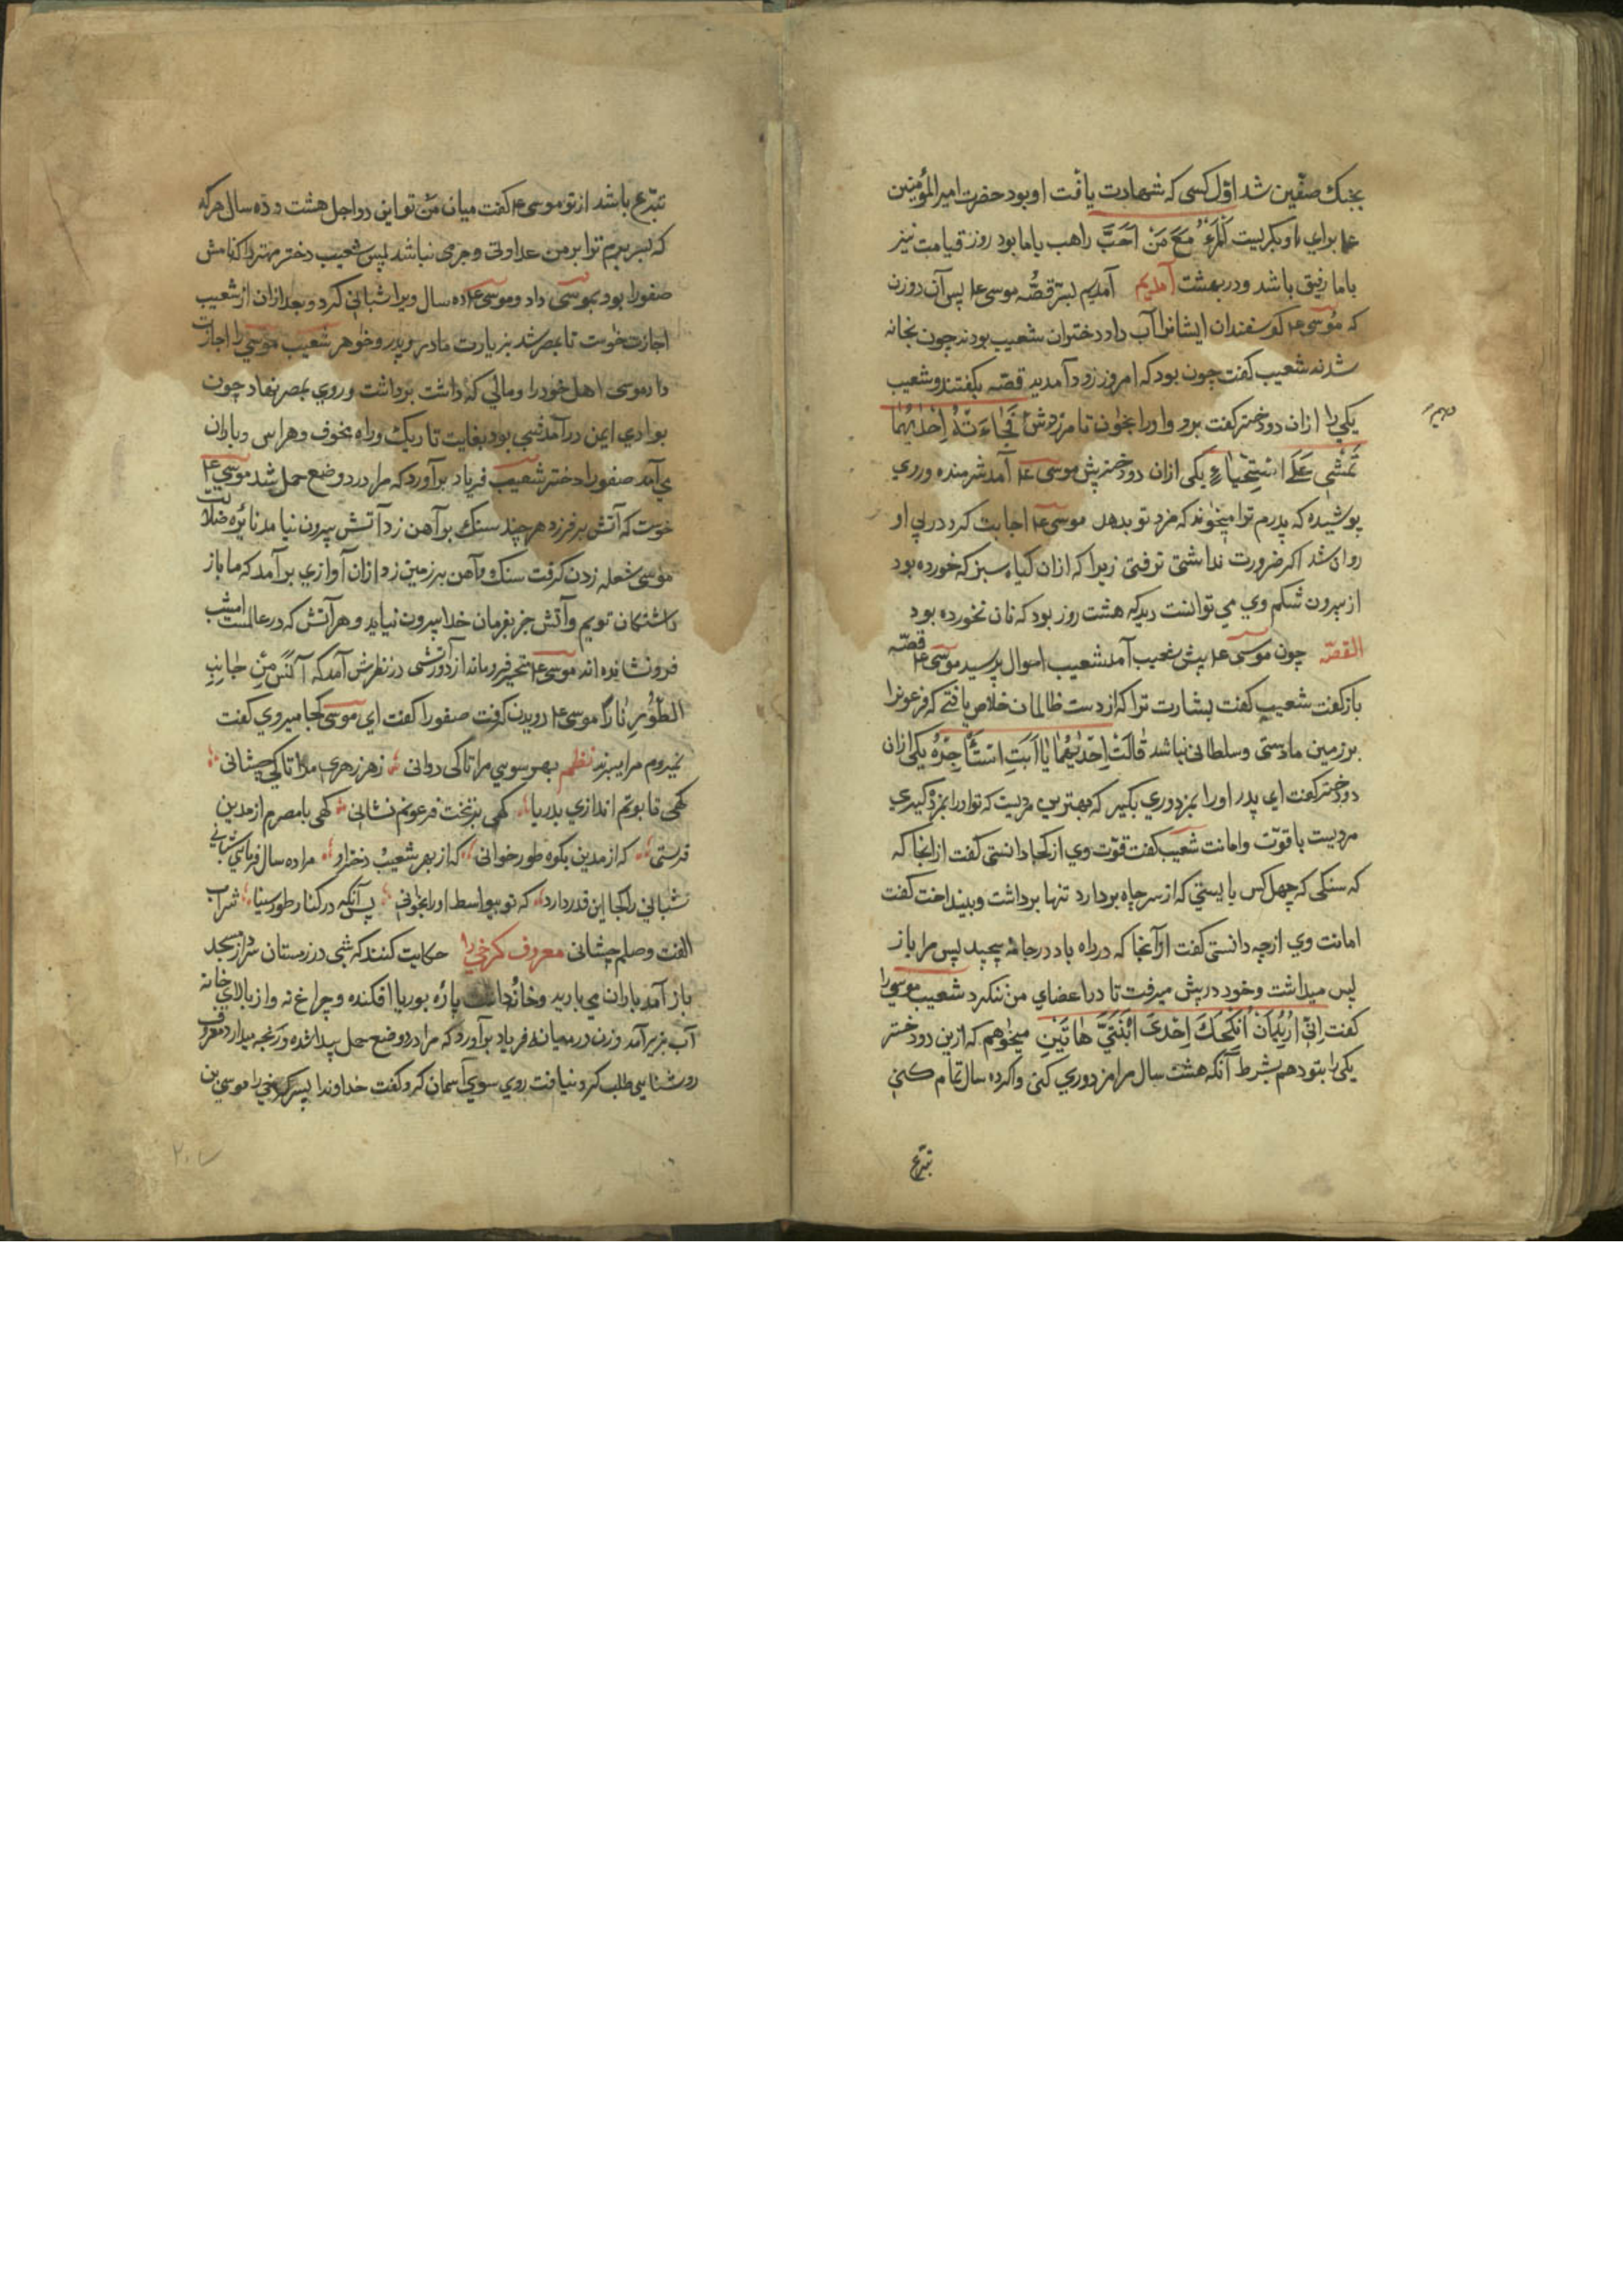 بجنك صفّين شد اوّل كسى كه شهادت يافت او بود حضرت اميرالمؤمنين
براي او بكريست كالمرءُ مَعَ مَنْ اَحَبَّ راهب باما بود روز قيامت نيز
باما رفيق باشد و در بهشت آمديم آمديم بسر قصّه موسى ع‍ پس آن دو زن
كه موسى ع‍ كوسفندان ايشانرا آب داد دختران شعيب بودند چون بخانه
شدند شعيب كفت چون بود كه امروز زود آمديد قصّه بكفتند و شعيب
يكي را ازان دو دختر كفت برو و اورا بخوان تا مزدوش فَجَاءَتْهُ اِحْدٰيهُمَا
تَمْشٖي عَلَے اسْتِحْيَاءٍ يكى ازان دو دختر پش موسى ع‍ آمد شرمنده و روي
پوشيده كه پدرم ترا ميخواند كه مزد تو بدهد موسى ع‍ اجابت كرد در پي او
روان شد اكر ضرورت نداشتى نرفتى زيرا كه ازان كياه سبز كه خورده بود
از بيرون شكم وي مي توانست ديد كه هشت روز بود كه نان نخورده بود
القصّه چون موسى ع‍ پيش شعيب آمد شعيب احوال پرسيد موسى ع‍ قصّه
باز كفت شعيب كفت بشارت ترا كه از دست ظالمان خلاص يافتے كه فرعونرا
بر زمين ما دستى و سلطانى نباشد قَالَتْ اِحْدٰيهُمَا يَا اَبَتِ اسْتَأْجِرْهُ يكى ازان
دو دختر كفت اي پدر او را بمزدوري بكير كه بهترين مرديست كه تو اورا بمزد كيري
مرديست با قوّت و امانت شعيب كفت قوّت وي از كجا دانستى كفت ازانجا كه
كه سنكى كه چهل كس بايستي كه از سر چاه بردارد تنها برداشت و بينداخت كفت
امانت وي از چه دانستى كفت از آنجا كه در راه باد در جامۀ پيچيد پس مرا باز
پس ميداشت و خود در پيش ميرفت تا در اعضاي من ننكرد شعيب موسى را
كفت اِنّٖي اُرٖيدُ اَنْ اُنْكِحَكَ اِحْدَى ابْنَتَيَّ هَاتَيْنِ ميخواهم كه ازين دو دختر
يكى را بتو دهم بشرط آنكه هشت سال مرا مزدوري كنى و اكر ده سال تمام كني
تبرّع
تبرّع باشد از تو موسى ع‍ كفت ميان من و تو اين دو اجل هشت و ده سال هر كه
كه بسر برم ترا بر من عداوتى و جرمى نباشد پس شعيب دختر مهتر را كه نامش
صفورا بود بموسى داد و موسى ع‍ ده سال ويرا شبانى كرد و بعد ازان از شعيب
اجازت خواست تا بمصر شد بزيارت مادر و پدر و خواهر شعيب موسى را اجازت
داد موسى اهل خود را و مالي كه داشت برداشت و روي بمصر نهاد چون
بوادي ايمن درآمد شبي بود بغايت تاريك و راه مخوف و هراس و باران
مي آمد صفورا دختر شعيب فرياد برآورد كه مرا درد وضع حمل شد موسى ع‍
خوست كه آتش برفرزد هر چند سنك بر آهن زد آتش بيرون نيامد نائره ضلالت
موسى شعله زدن كرفت سنك و آهن بر زمين زد ازان آوازي برآمد كه ما باز
داشتكان تويم و آتش جز بفرمان خدا بيرون نيايد و هر آتش كه در عالمست امشب
فرو نشانيده اند موسى ع‍ متحير فرو ماند از دور آتشى در نظرش آمد كه آنَسَ مِنْ جَانِبِ
الطُّورِ نَارًا موسى ع‍ دويدن كرفت صفورا كفت اي موسى كجا ميروي كفت
نميروم مرا ميبرند نظم بهر سوي مرا تا كى دوانى ز هر زهري مرا تا كي چشانى
كهى تابوتم اندازي بدريا كهى بر تخت فرعونم نشانى كهى با مصرم از مدين
فرستى كه از مدين بكوه طور خوانى كه از بهر شعيب و دختر او مرا ده سال فرماي شبانى
شبانى را كجا اين قدر دارد كه تو بيواسط اورا بخوانى پس آنكه در كنار طور سينا شراب
الفت و صلم چشانى معروف كرخي را حكايت كنند كه شبى در زمستان سرد از مسجد
باز آمد باران مي باريد و خانۀ داشت پارۀ بوريا افكنده و چراغ نه و از بالاي خانه
آب بزير آمد و زن در ميانه فرياد برآورد كه مرا درد وضع حمل پيدا شده و رنجه ميدارد معروف
روشنايى طلب كرد نيافت روي سوي آسمان كرد و كفت خداوندا پسر كرخي را موسى بن